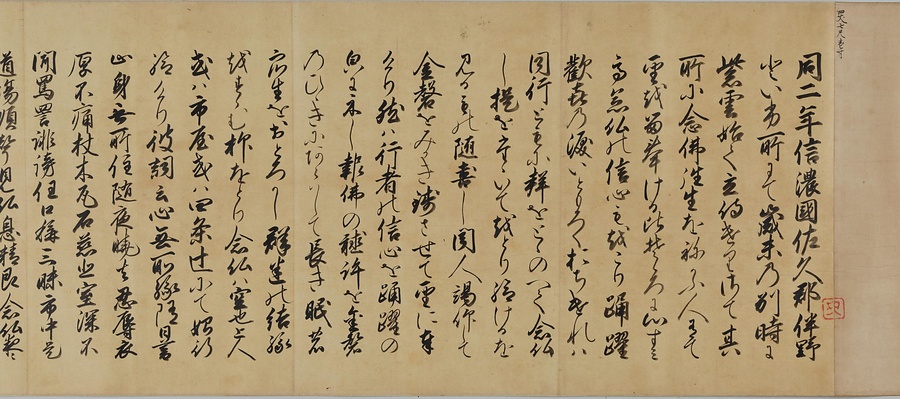 同二年信濃國佐久郡伴野
といふ所にて歳末の別時に
紫雲始て立侍けりさて其
所に念佛往生を祢かふ人ありて
聖を留奉ける比すゝろに心すみて
念仏の信心もおこり踊躍
歓喜の涙いともろくおちけれハ
同行ともに聲をとゝのへて念仏
し提をたゝいてをとり給けるを
見るもの随喜し聞人渇仰して
金磬をみかき鋳させて聖に奉
けり然ハ行者の信心を踊躍の
皃に示し報佛の聴許を金磬
のひゝきにあらハして長き眠の衆
生をおとろかし群迷の結縁
をすゝむ抑をとり念仏ハ空也上人
或ハ市屋或ハ四条辻にて始行
給けり彼詞云心無所縁随日暮
止身無所住随夜暁去忍辱衣
厚不痛杖木瓦石慈悲室深不
聞罵詈誹謗任口稱三昧市中是
道場順聲見仏息精即念仏